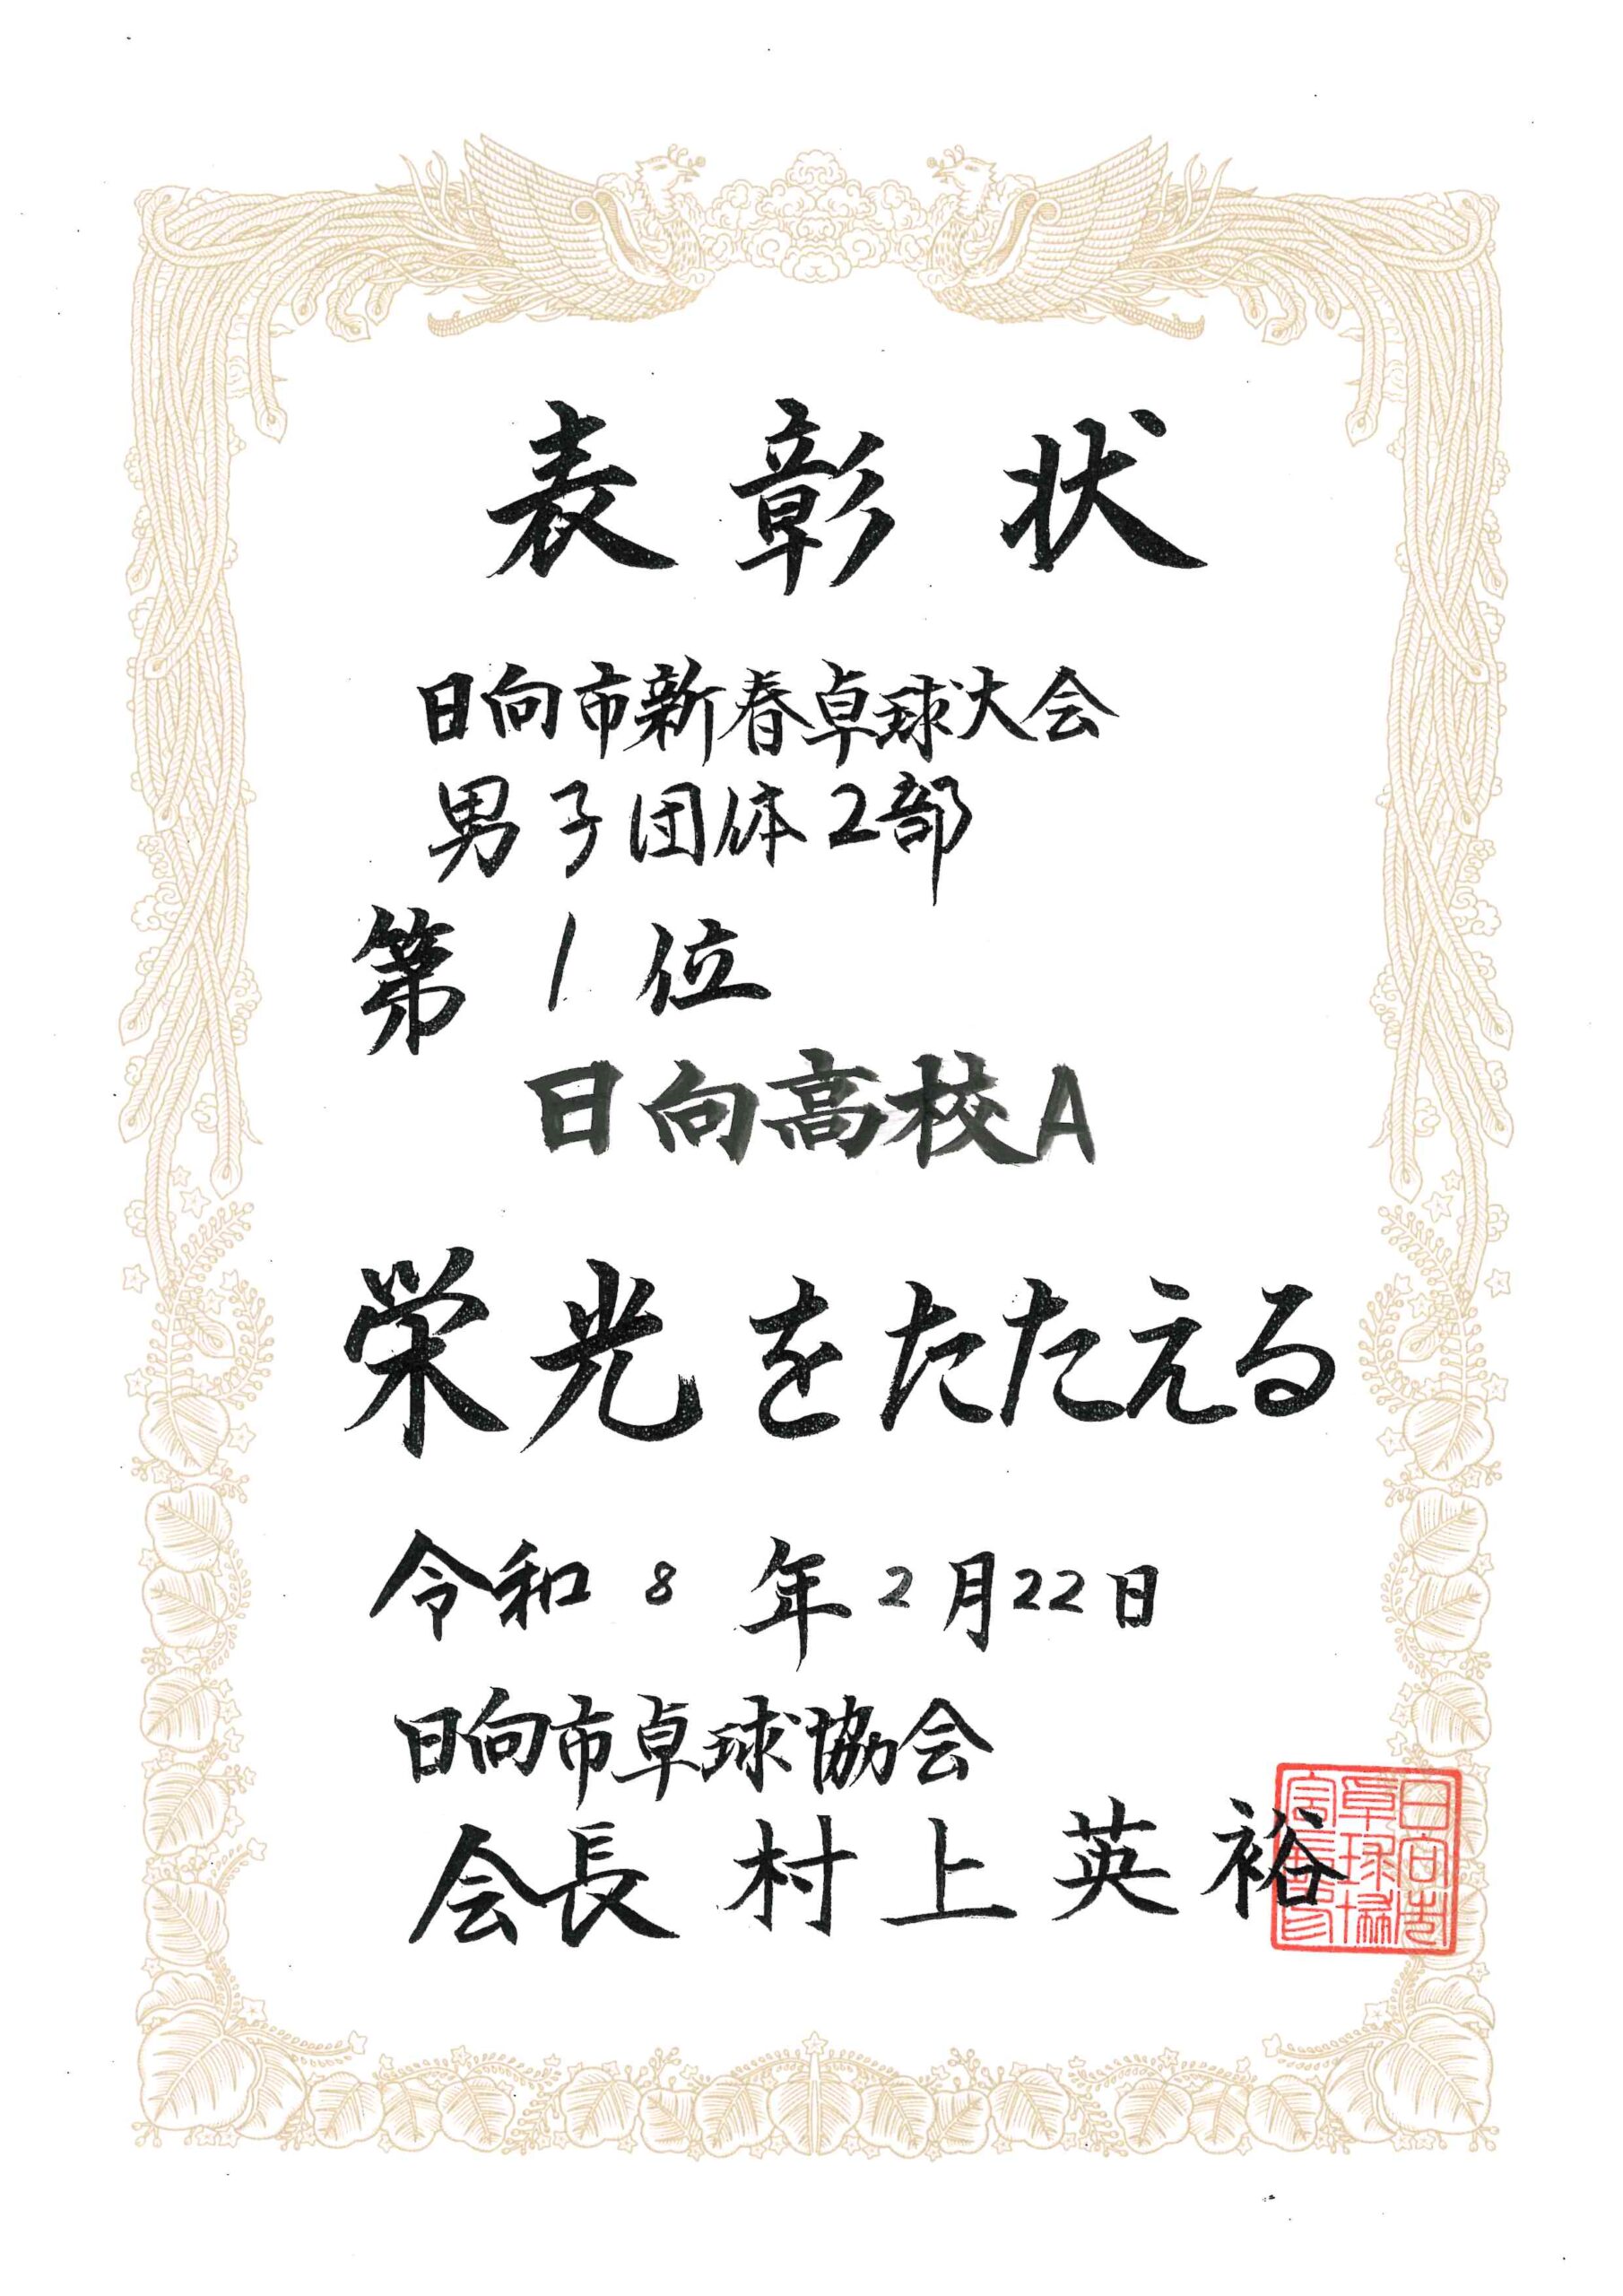 表彰状
日向市新春卓球大会
男子団体2部
第1位
日向高校A
栄光をたたえる
令和8年2月22日
日向市卓球協会
会長 村上英裕
日向市
卓球協
会長印